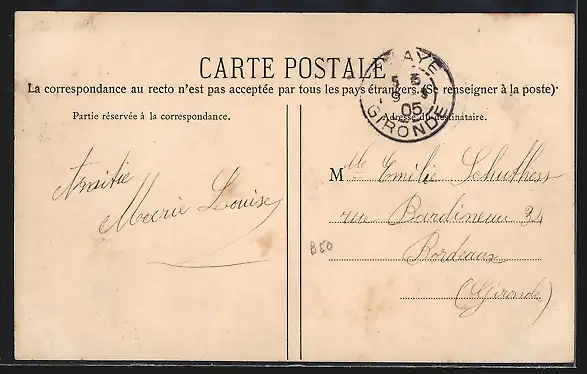 CARTE POSTALE
La correspondance au recto n'est pas acceptée par tous les pays étrangers. (Se renseigner à la poste)
Partie réservée à la correspondance.
Adresse du destinataire.
BLAYE
5 5
9 5
05
GIRONDE
Amitié
Marie Louise
M lle Emilie Schulthess
rue Bardineau 34
Bordeaux
(Gironde)
B50